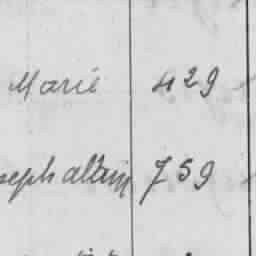 Marie 429
seph allain 759